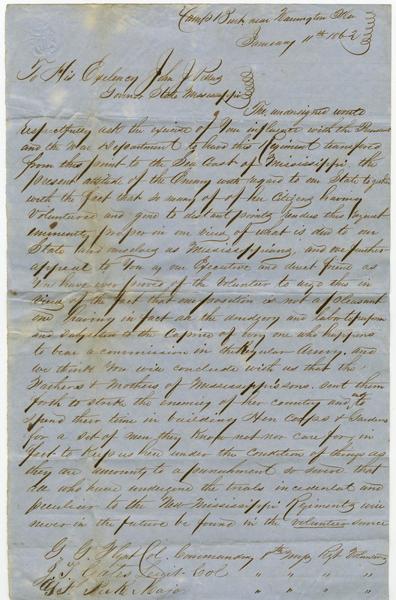 Camp near Warrington Fla
January 11th 1862
To His Exelency John J Pettus
Governor State Mississippi
The undersigned would
respectfully ask the exercise of Your influence with the President
and the War Department to have this Regiment transfered
from this point to the Sea Coast of Mississippi the
present attitude of the Enemy with regard to our State together
with the fact that so many of her Citizens having
Volunteered and gone to distant points renders this request
eminently proper in our view of what is due to our
State and ourselves as Mississippians, and we further
appeal to You as our Executive and direct friend as
You have ever proved of the Volunteer to urge this in
view of the fact that our position is not a pleasant
one having in fact all the drudgery and labor to perform
and Subjected to the Caprice of every one who happens
to bear a commission in the Regular Army, and
we think You will conclude with us that the
Fathers & Mothers of Mississippi sons sent them
forth to strike the enemy of her country and not to
spend their time in building Hen coops & Gardens
for a set of men they know not nor care for, in
fact to keep us here under the condition of things as
they are amounts to a punishment so severe that
all who have undergone the trials incedental and
peculiar to the Mississippi Regiments will
never in the future be found in the volunteer service
Col. Commanding 8th Miss Regt Volunteers
Lieut Col " " " "
Major " " " "